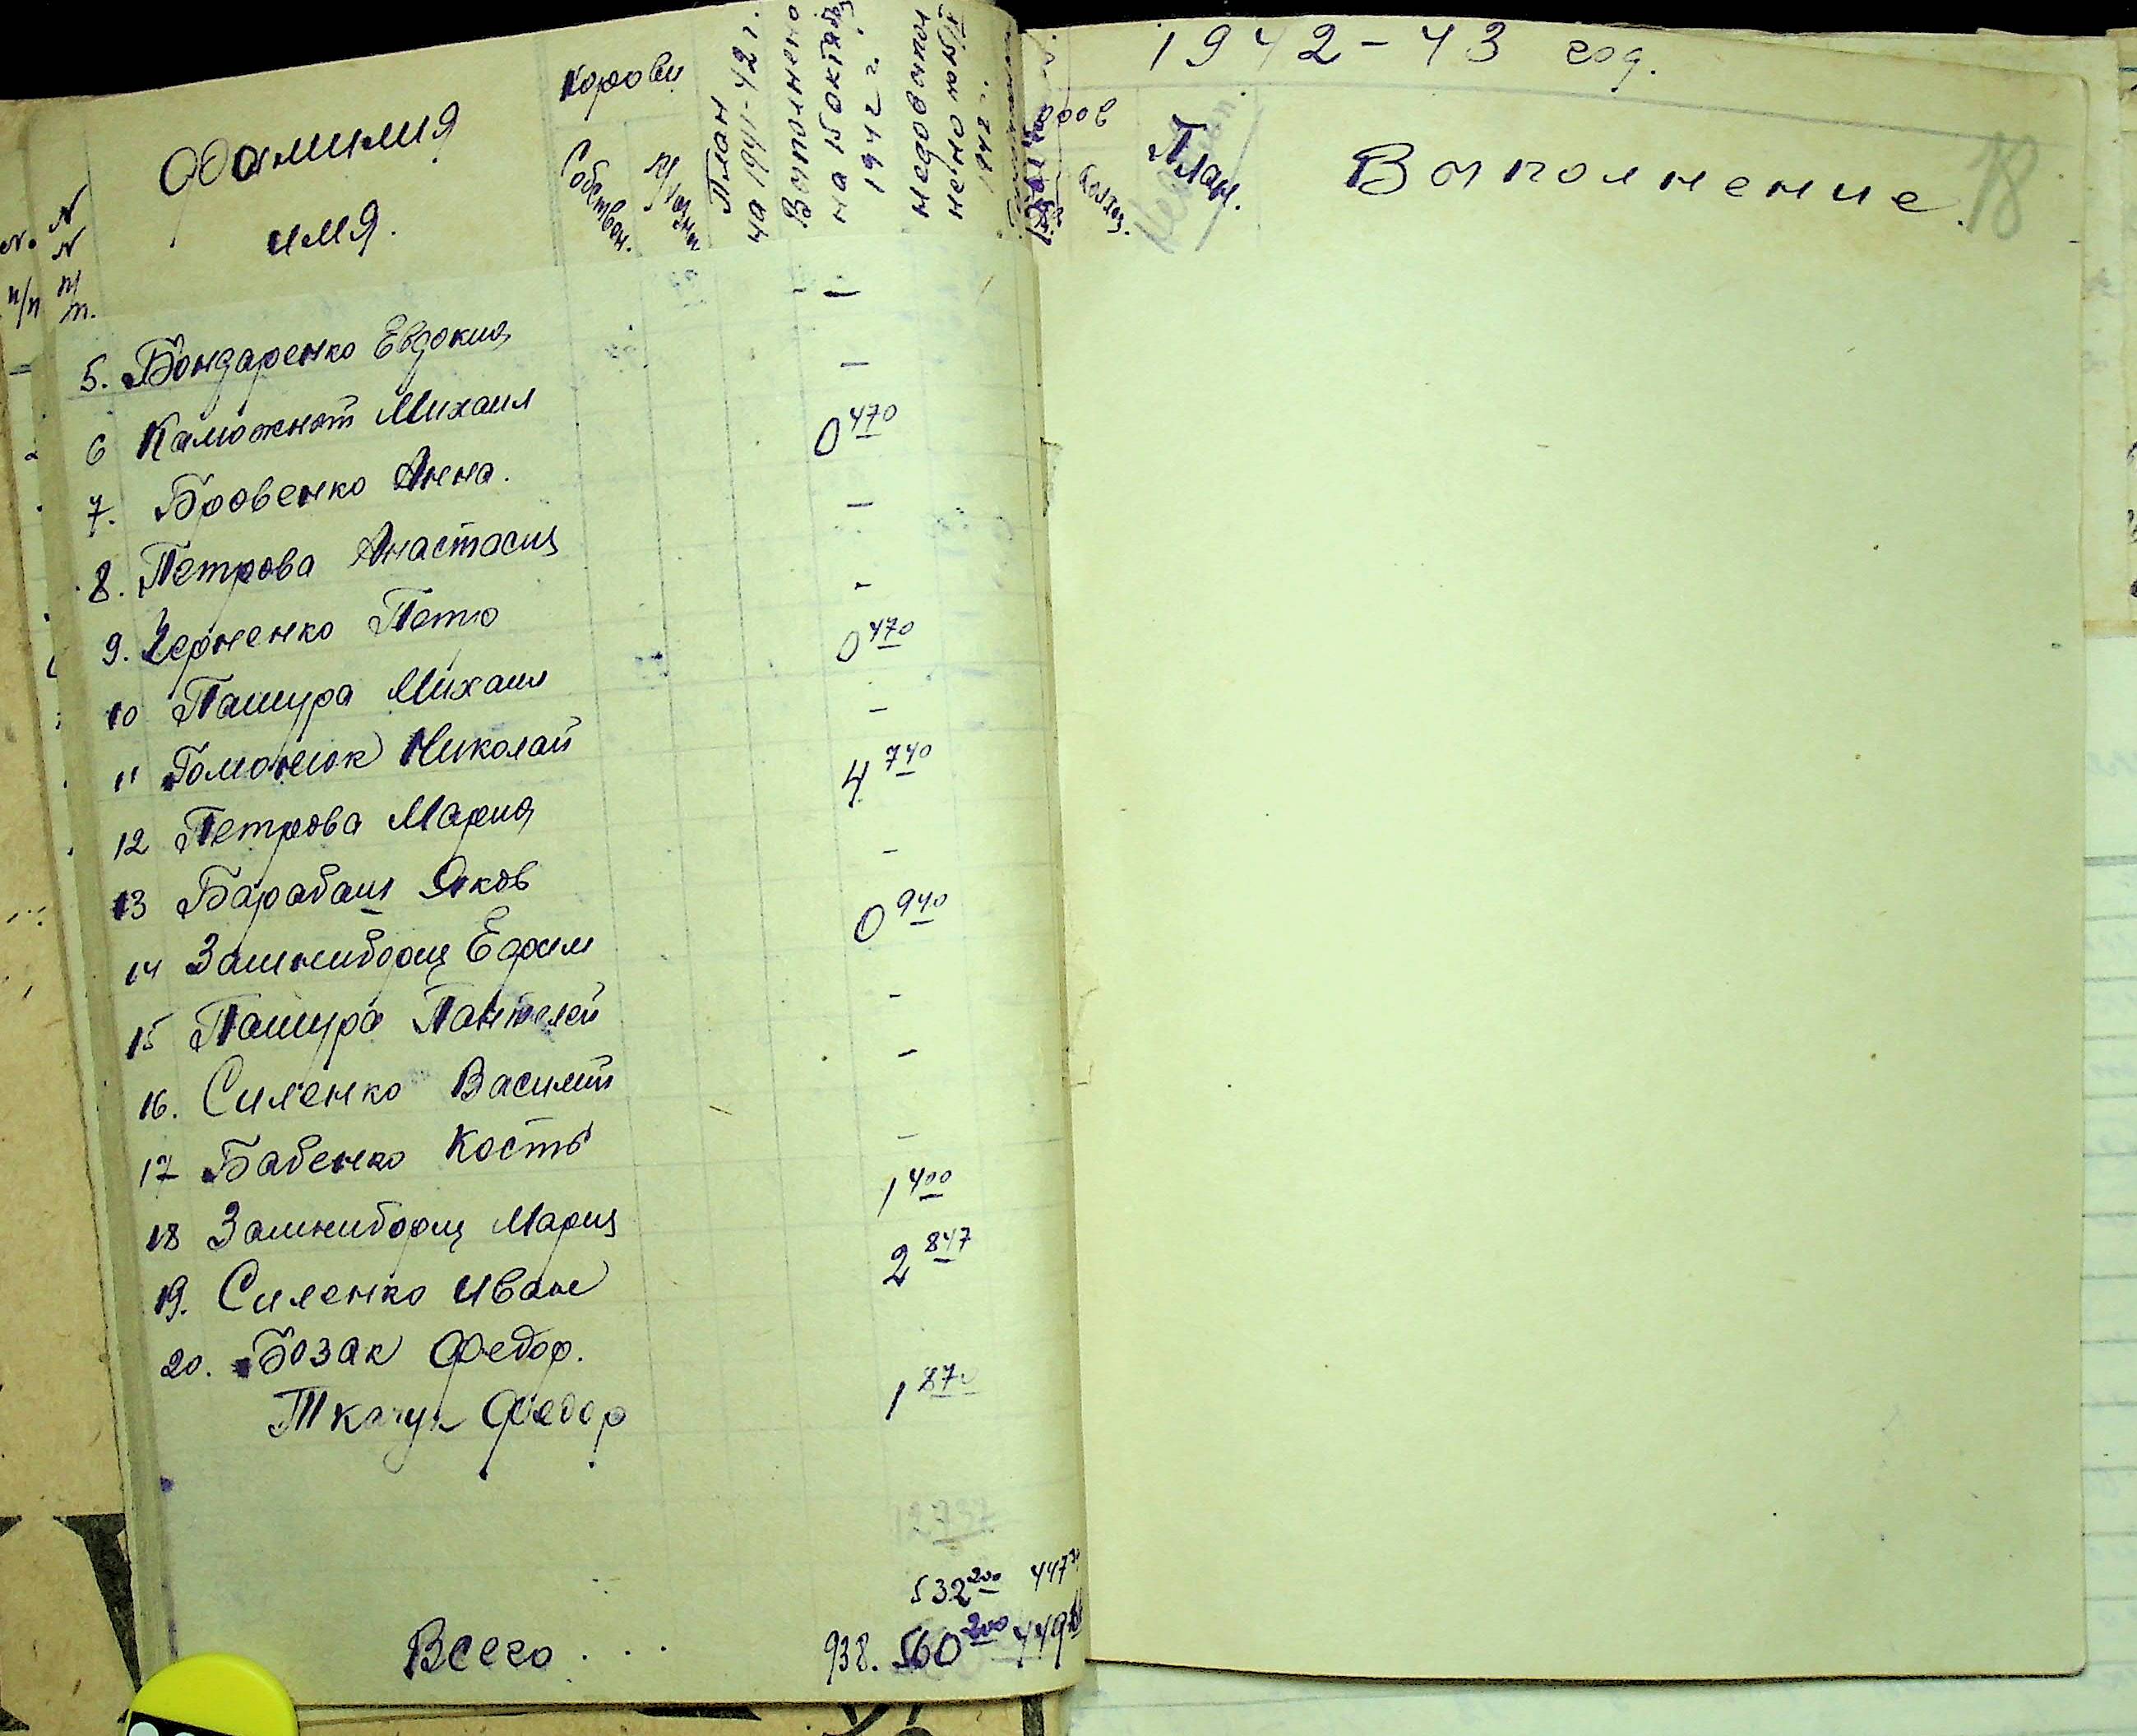 Фамилия
имя.
N. N
N
п/п п/
п.
Коровы
Собствен.
План
на 1941-42 г.
Выполнено
на 15 октября
1942 г.
недовыпол
нено на 15/X
1942 г.
5. Бондаренко Евдокия —
6 Каможнот Михаил —
7. Бровенко Анна. 0 470
8. Петрова Анастасия —
9. Черненко Петро -
10 Пашура Михаил 0 470
11 Гомонюк Николай —
12 Петрова Мария 4 740
13 Барабаш Яков -
14 Зашниборщ Ефим 0 940
15 Пашура Пантелей -
16. Силенко Василий -
17 Бабенко Кость -
18 Зашниборщ Мария 1 400
19. Силенко Иван 2 847
20. Бозак Федор.
Ткачук Федор 1 870
12 737
532 200 447
Всего . . . 938. 560 200 449
1942-43 год.
План.
Выполнение.
18